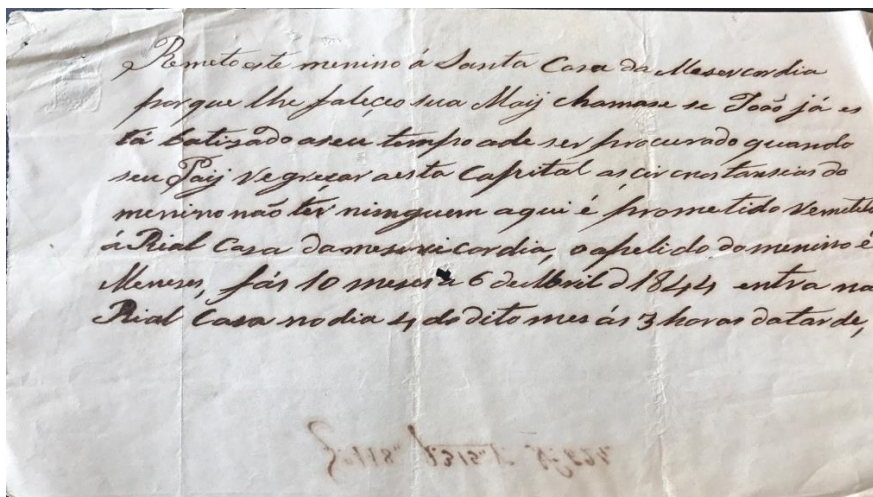 Remeto este menino á Santa Casa da Mesercordia
porque lhe faleçeo sua Maij chamase se João já es
tá batizado aseu tempo ade ser procurado quando
seu Paij regreçar aesta Capital as circnstanseias do
menino não ter ninguem aqui é prometido remete
á Rial Casa damesericordia, o apelido domenino é
Meneses, fás 10 meses a 6 de Abril d 1844 entra na
Rial Casa no dia 4 do dito mes ás 3 horas datarde,